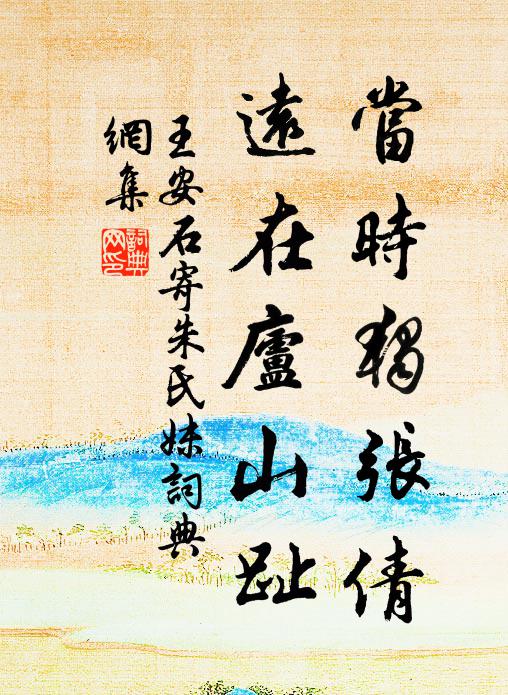 當時獨張倩
遠在廬山趾
王安石寄朱氏妹詞典
網集
詞典網印